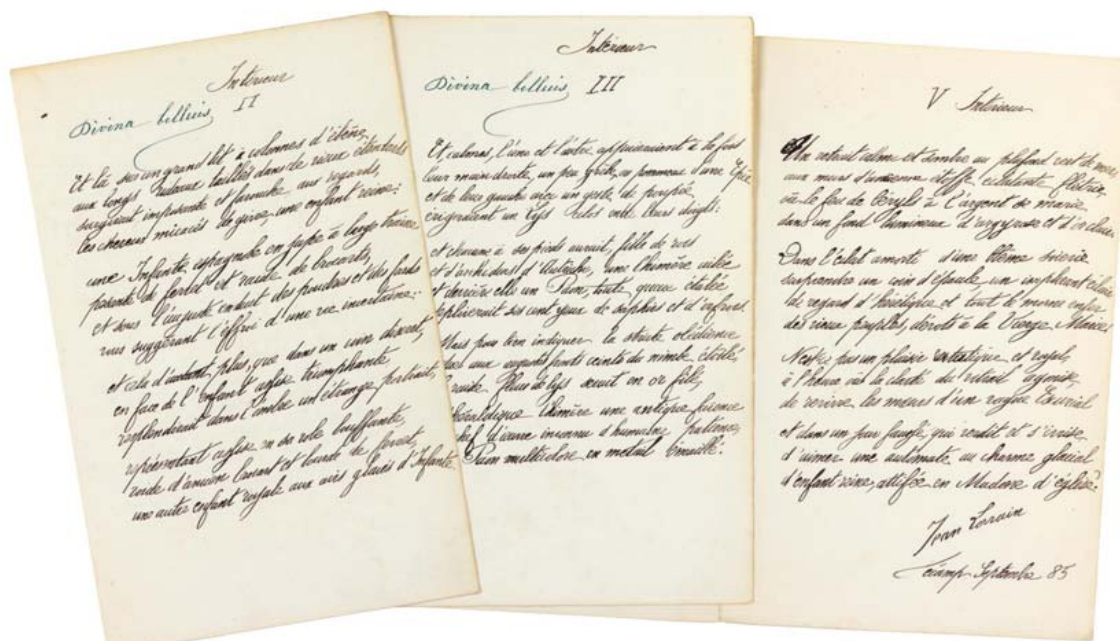 Intérieur
Divina bellius II
Et là sur un grand lit à colonnes d'ébène,
aux longs rideaux taillés dans de vieux étendards
surgirait imposante et farouche aux regards,
les cheveux micacés de givre, une enfant reine:
une Infante espagnole en jupe à large traîne
parante de ferrets et raide de brocarts,
et sous l'auguste enduit des poudres et des fards
vous suggérant l'effroi d'une vie incertaine:
et cela d'autant plus, que dans un coin obscur,
en face de l'enfant assise triomphante
resplendirait dans l'ombre un étrange portrait,
représentant assise en sa robe bouffante,
roide d'ancien lasart et lourde de
une autre enfant royale aux airs glacés d'Infante
Intérieur
Divina bellius III
Et, calmes, l'une et l'autre appuieraient à la fois
leur main droite, un peu grêle, au pommeau d'une
et de leur gauche avec un geste de poupée
érigeraient un lys entre leurs doigts:
et chacune à ses pieds aurait, fille de rois
et d'archiducs d'Autriche, une Chimère ailée
et derrière elle un Paon, toute queue étalée
éploierait ses cent yeux de saphirs et d'orfrois.
Mais pour bien indiquer la stricte obédience
aux augustes fronts ceints du nimbe étoilé
Fleur de lys serait en or filé,
héraldique Chimère une antique faïence
chef d'œuvre inconnu d'humaine patience,
Paon multicolore en métal émaillé.
V Intérieur
Un retrait calme et sombre au plafond vert de mer
aux murs d'ancienne étoffe éclatante flétrie,
où le feu de béryls à l'argent se marie
dans un fond lumineux d'argyrose et d'or clair.
Dans l'éclat amorti d'une blême soierie
surprendre un coin d'épaule, un implorant éclair
de regard d'hérétique et tout le morne enfer
des vieux peuples, dévots à la Vierge Marie.
N'est-ce pas un plaisir extatique et royal,
à l'heure où la clarté du vitrail agonise,
de revivre les mœurs d'un vague Escurial
et dans un jour faussé, qui verdit et s'irise
d'aimer une automate au charme glacial
d'enfant reine, attifée en Madone d'église?
Jean Lorrain
Fécamp Septembre 85